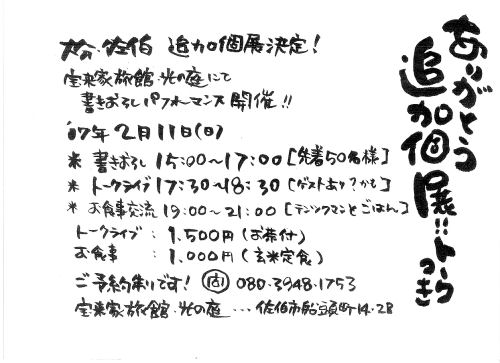 ありがとう
追加個展!!トーク
つき
大分・佐伯 追加個展決定!
宝来家旅館・光の庭にて
書きおろしパフォーマンス開催!!
'07年2月11日(日)
* 書きおろし 15:00〜17:00[先着50名様]
* トークライブ 17:30〜18:30[ゲストあり?かも]
* お食事交流 19:00〜21:00[テンツクマンとごはん]
トークライブ : 1,500円(お茶付)
お食事 : 1,000円(玄米定食)
ご予約制です! 問 080-3948-1753
宝来家旅館・光の庭…佐伯市船頭町14-28